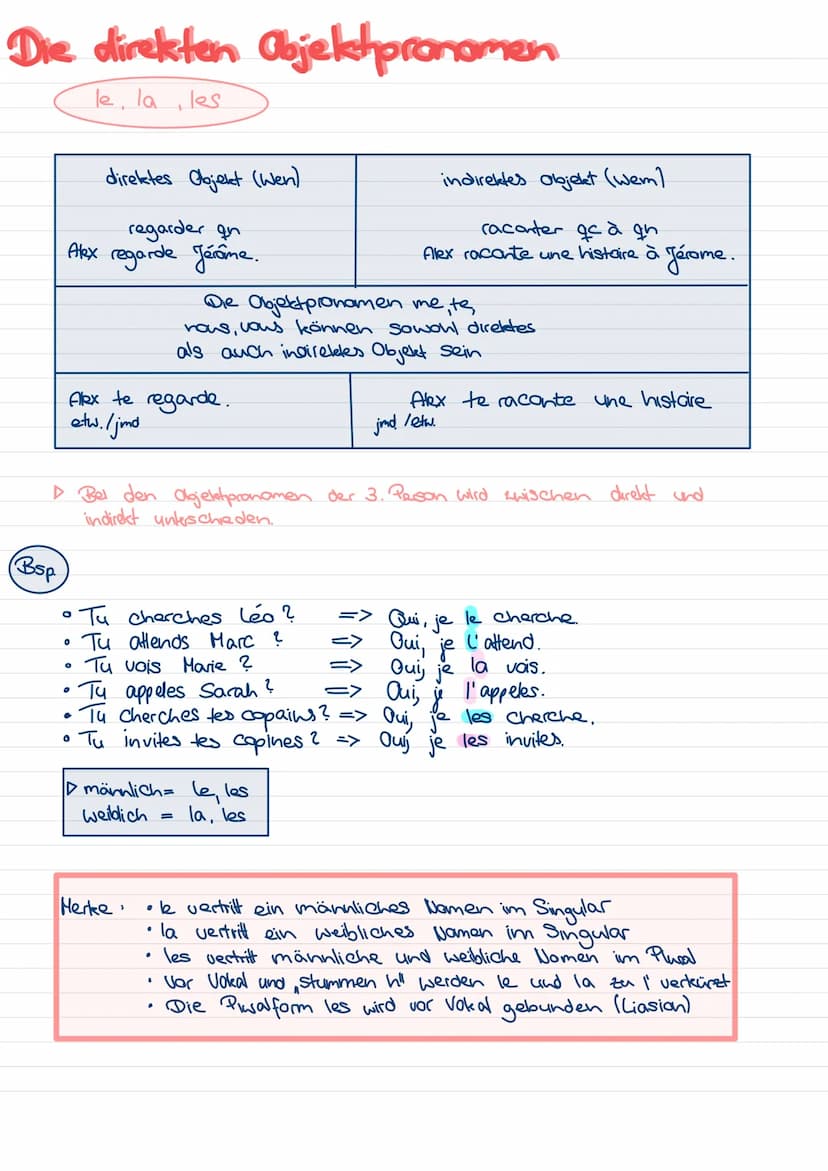 Die direkten Objektpronomen
le, la, les
direktes Objekt (Wen)
indirektes Objekt (Wem)
regarder qn
Alex regarde Jérôme.
raconter qc à qn
Alex raconte une histoire à Jérome.
Die Objektpronomen me, te,
nous, vous können sowohl direktes
als auch indirektes Objekt sein
Alex te regarde.
etw./jmd
Alex te raconte une histoire
jmd /etw.
▷ Bei den Objektpronomen der 3. Person wird zwischen direkt und
indirekt unterscheden.
Bsp
• Tu cherches Léo? => Oui, je le cherche.
• Tu attends Marc? => Oui, je l'attend.
• Tu vois Marie? => Oui, je la vois.
• Tu appeles Sarah? => Oui, je l'appeles.
• Tu cherches tes copains? => Oui, je les cherche.
• Tu invites tes copines? => Oui, je les invites.
▷ männlich= le, les
weiblich = la, les
Merke: • le vertritt ein männliches Nomen im Singular
• la vertritt ein weibliches Nomen im Singular
• les vertritt männliche und weibliche Nomen im Plural
• Vor Vokal und „stummen h" werden le und la zu l' verkürzt
• Die Pluralform les wird vor Vokal gebunden (Liasion)